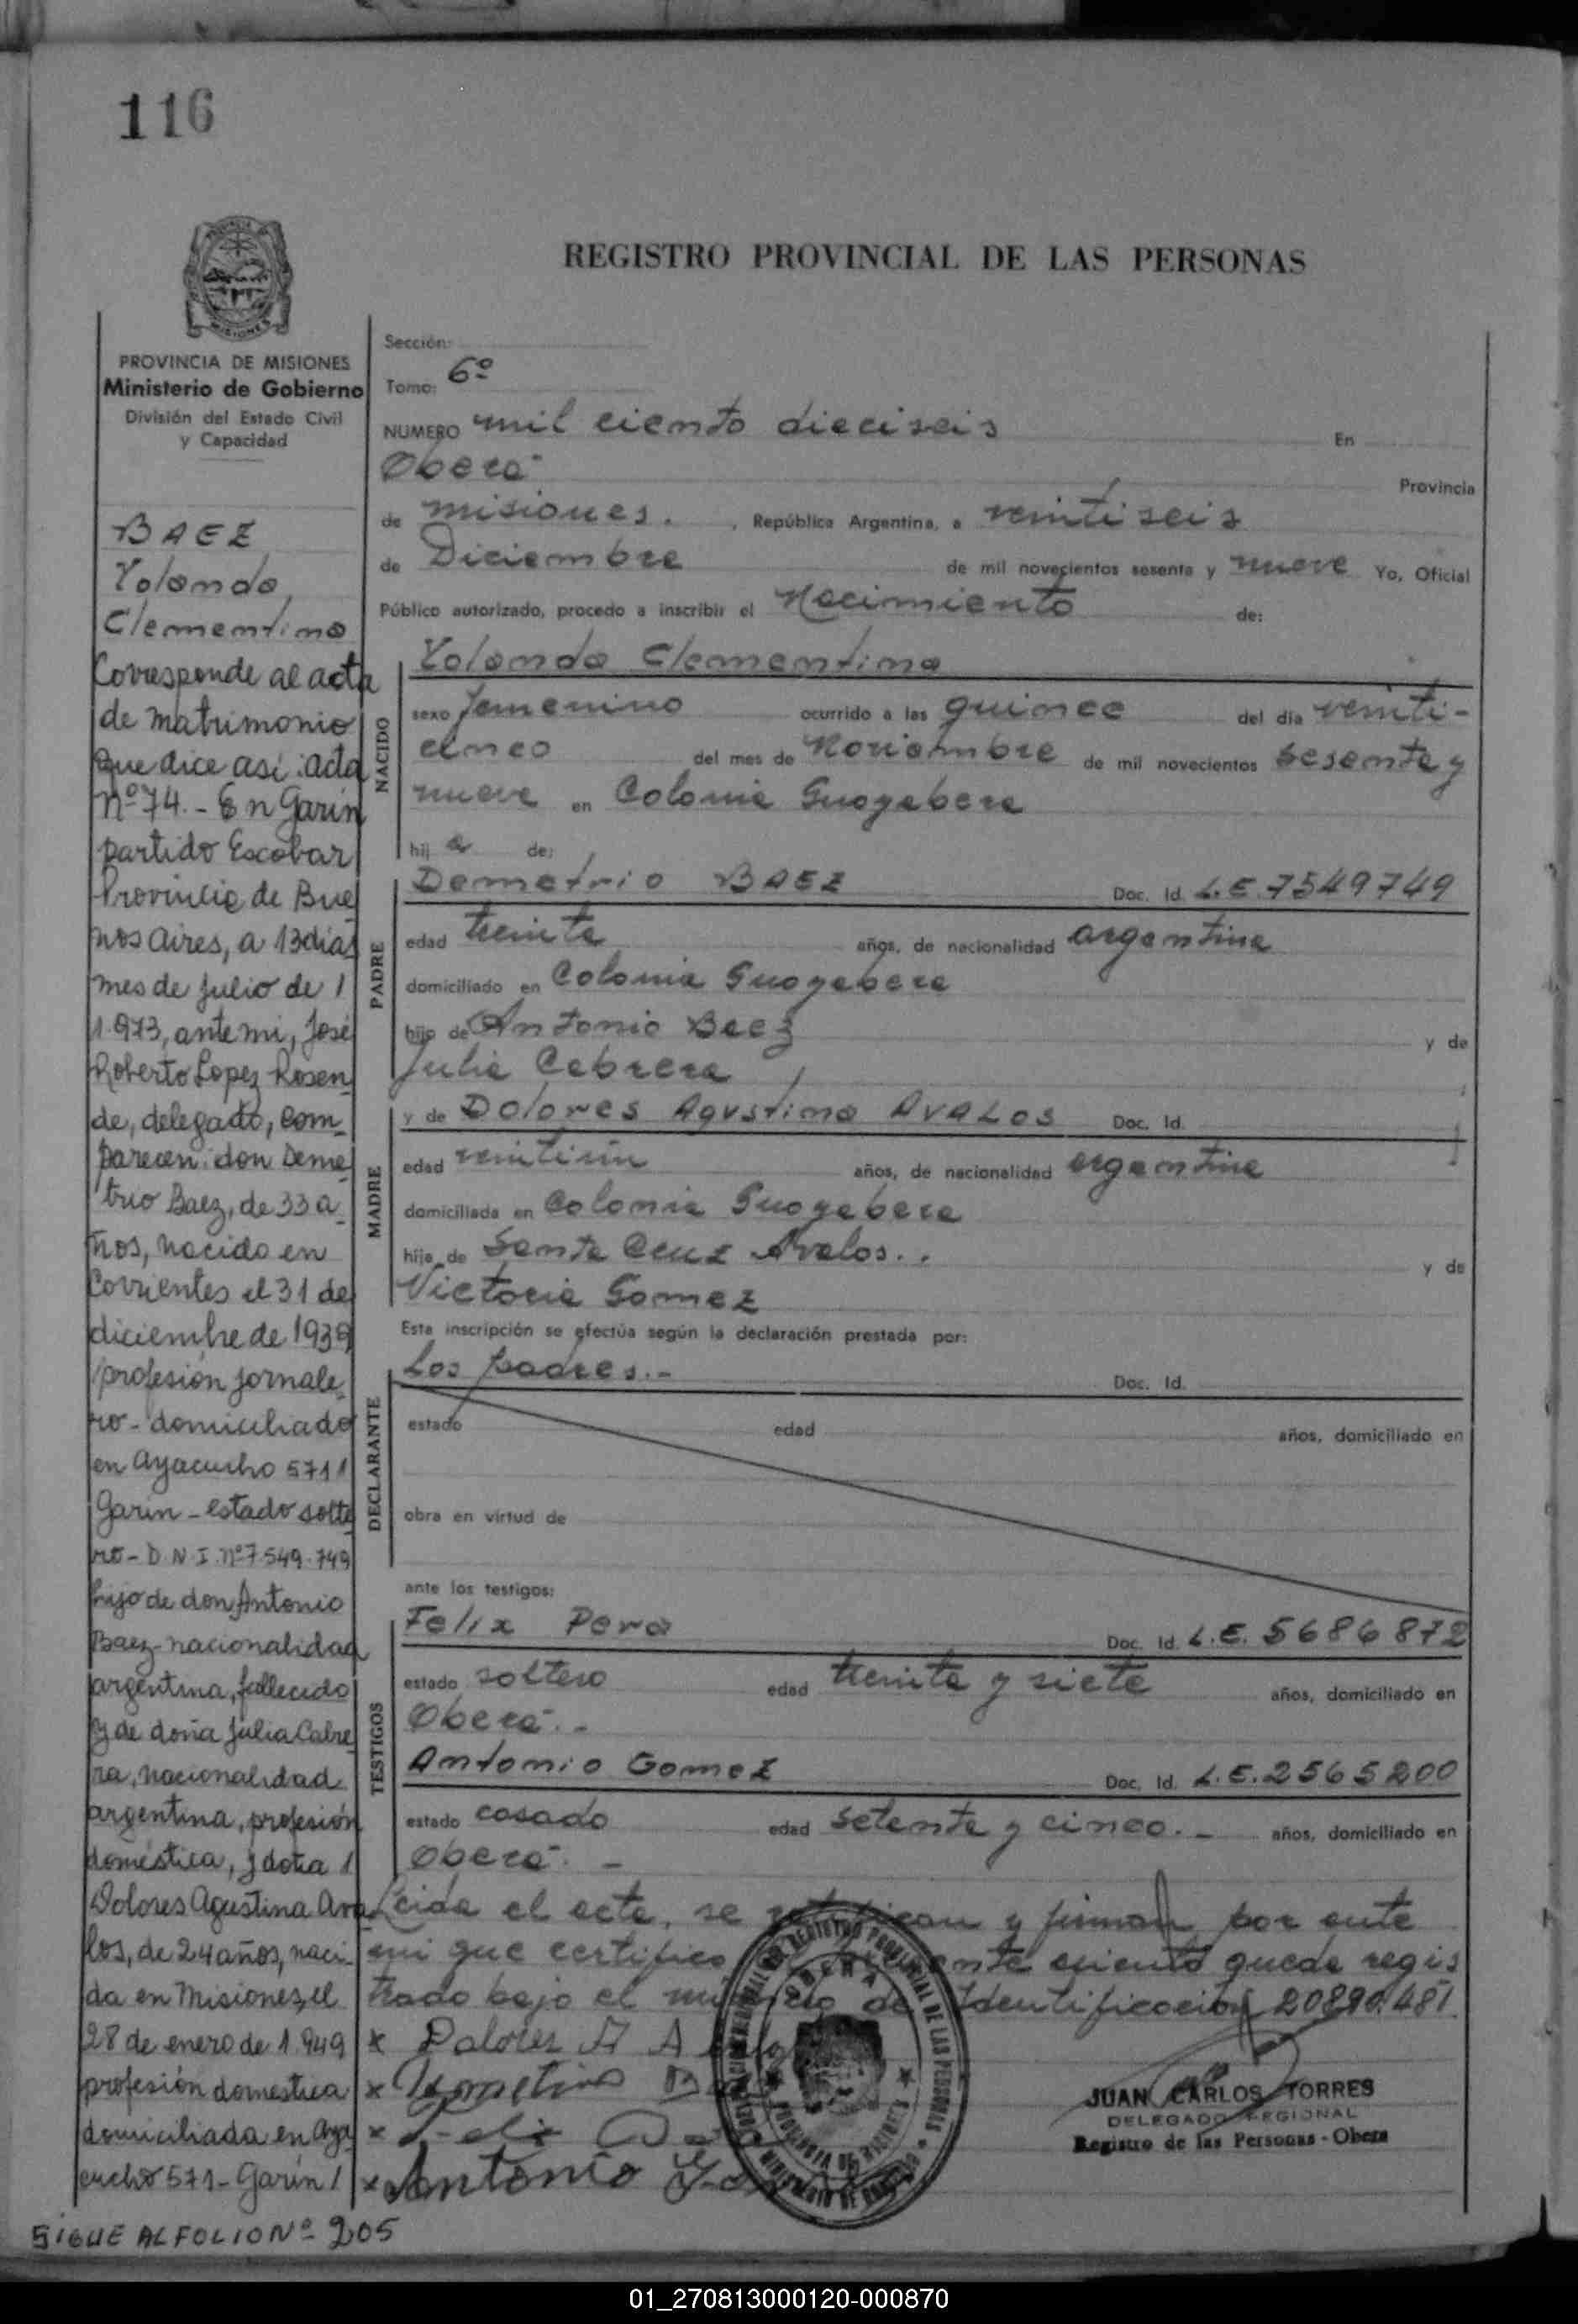 116
REGISTRO PROVINCIAL DE LAS PERSONAS
PROVINCIA DE MISIONES
Ministerio de Gobierno
División del Estado Civil
y Capacidad
BAEZ
Yolanda
Clementina
Corresponde al acta
de matrimonio
que dice así: acta
nº 74.- En Garín
partido Escobar
Provincia de Bue
nos Aires, a 13 dias
mes de julio de 1
1.973, ante mi, José
Roberto Lopez Rosen
de, delegado, com_
parecen: don Deme
trio Baez, de 33 a_
ños, nacido en
Corrientes el 31 de
diciembre de 1939
profesión jornale_
ro - domiciliado
en Ayacucho 571 1
Garín - estado solte
ro - D.N.I. nº 7.549.749
hijo de don Antonio
Baez - nacionalidad
argentina, fallecido
y de doña Julia Cabre
ra, nacionalidad
argentina, profesión
doméstica, y doña 1
Dolores Agustina Ava
los, de 24 años, naci_
da en Misiones, el
28 de enero de 1.949
profesión domestica
domiciliada en Aya
cucho 571 - Garín /
SIGUE AL FOLIO Nº 205
Sección:
Tomo: 6º
NUMERO mil ciento dieciseis En
Oberá Provincia
de misiones. , República Argentina, a veintiseis
de Diciembre de mil novecientos sesenta y nueve Yo, Oficial
Público autorizado, procedo a inscribir el Nacimiento de:
NACIDO
Yolanda Clementina
sexo femenino ocurrido a las quince del día veinti-
cinco del mes de Noviembre de mil novecientos sesenta y
nueve en Colonia Guayabera
hij a de:
PADRE
Demetrio BAEZ Doc. Id. L.E. 7549749
edad treinta años, de nacionalidad argentina
domiciliado en Colonia Guayabera
hijo de Antonio Baez y de
Julia Cabrera
MADRE
y de Dolores Agustina AVALOS Doc. Id.
edad veintiún años, de nacionalidad argentina
domiciliada en Colonia Guayabera
hija de Santa Cruz Avalos.. y de
Victoria Gomez
Esta inscripción se efectúa según la declaración prestada por:
DECLARANTE
Los padres.- Doc. Id.
estado edad años, domiciliado en
obra en virtud de
ante los testigos:
TESTIGOS
Felix Pera Doc. Id. L.E. 5686872
estado soltero edad treinta y siete años, domiciliado en
Oberá.-
Antonio Gomez Doc. Id. L.E. 2565200
estado casado edad setenta y cinco.- años, domiciliado en
Oberá.-
Leida el acta, se ratifican y firman por ante
mi que certifico, asiento queda regis
trado bajo el numero de Identificación 20890.481
x Dolores A A
x
x
x Antonio
JUAN CARLOS TORRES
DELEGADO REGIONAL
Registro de las Personas - Obera
01_270813000120-000870